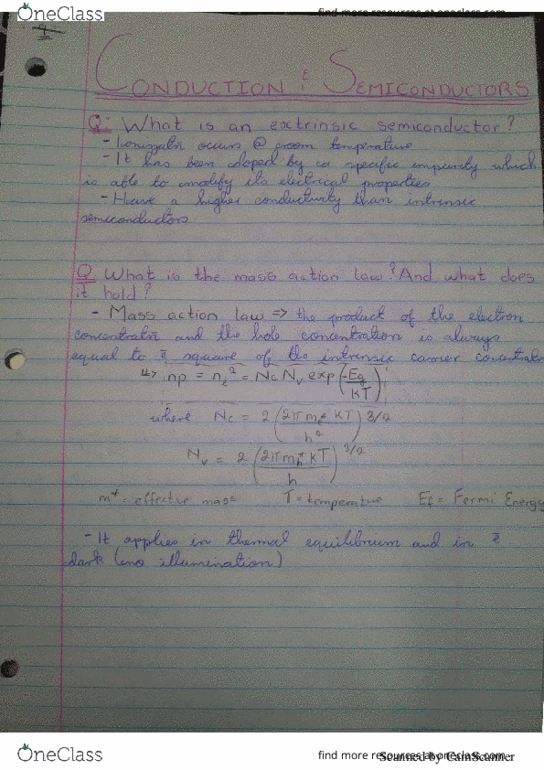 OneClass
find more resources at oneclass.com
CONDUCTION & SEMICONDUCTORS
Q: What is an extrinsic semiconductor?
- Ionization occurs @ room temperature
- It has been doped by a specific impurity which
is able to modify its electrical properties
- Have a higher conductivity than intrinsic
semiconductors
Q What is the mass action law? And what does
it hold?
- Mass action law => the product of the electron
concentration and the hole concentration is always
equal to square of the intrinsic carrier concentration
↳ np = ni² = Nc Nv exp(-Eg/kT)
where Nc = 2 (2πme* kT / h²)^3/2
Nv = 2 (2πmh* kT / h)^3/2
m* = effective mass T = temperature Ef = Fermi Energy
- It applies in thermal equilibrium and in
dark (no illumination)
OneClass
find more resources at oneclass.com
Scanned by CamScanner